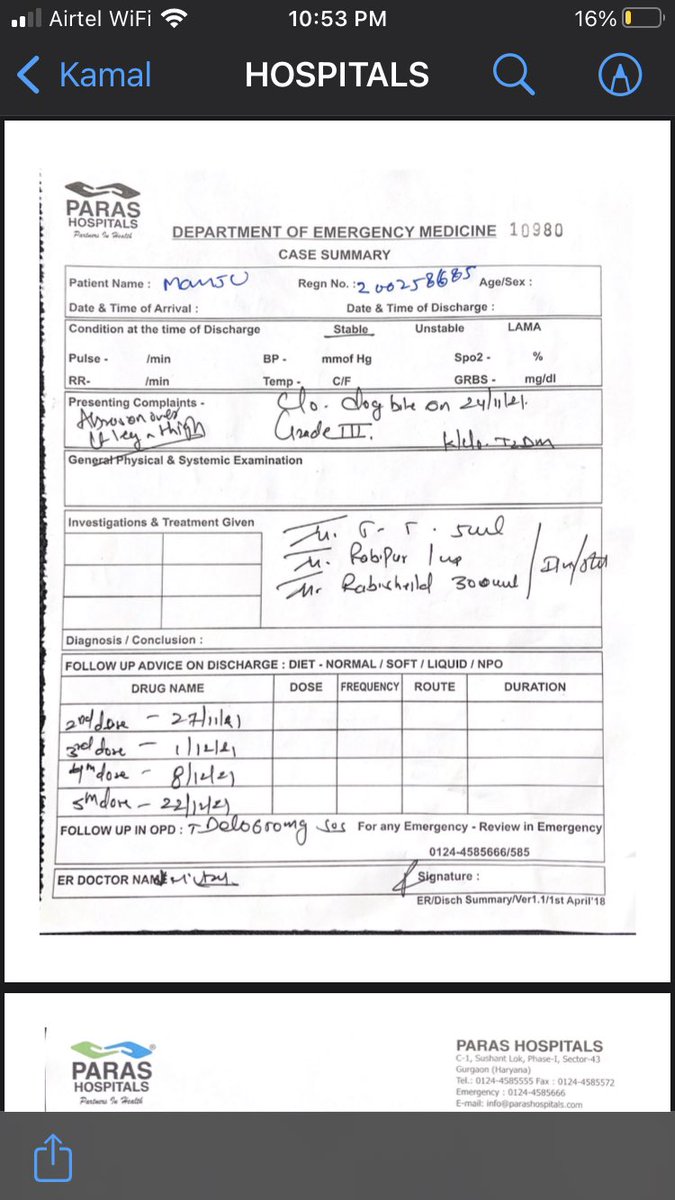 Airtel WiFi 10:53 PM 16%
Kamal HOSPITALS
PARAS
HOSPITALS
Partners In Health
DEPARTMENT OF EMERGENCY MEDICINE 10980
CASE SUMMARY
Patient Name : Manju Regn No. : 200258685 Age/Sex :
Date & Time of Arrival : Date & Time of Discharge :
Condition at the time of Discharge Stable Unstable LAMA
Pulse - /min BP - mmof Hg Spo2 - %
RR- /min Temp - C/F GRBS - mg/dl
Presenting Complaints - C/o. dog bite on 24/11/21.
Abrasion over Grade III.
lt leg n thigh K/c/o. T2DM
General Physical & Systemic Examination
Investigations & Treatment Given
T.T. 5ml
Rabipur 1
Rabishield 300
Diagnosis / Conclusion :
FOLLOW UP ADVICE ON DISCHARGE : DIET - NORMAL / SOFT / LIQUID / NPO
DRUG NAME DOSE FREQUENCY ROUTE DURATION
2nd dose - 27/11/21
3rd dose - 1/12/21
4th dose - 8/12/21
5th dose - 22/12/21
FOLLOW UP IN OPD : T Dolo 650mg SOS For any Emergency - Review in Emergency
0124-4585666/585
ER DOCTOR NAME Signature :
ER/Disch Summary/Ver1.1/1st April'18
PARAS
HOSPITALS
Partners In Health
PARAS HOSPITALS
C-1, Sushant Lok, Phase-I, Sector-43
Gurgaon (Haryana)
Tel.: 0124-4585555 Fax : 0124-4585572
Emergency : 0124-4585666
E-mail: info@parashospitals.com